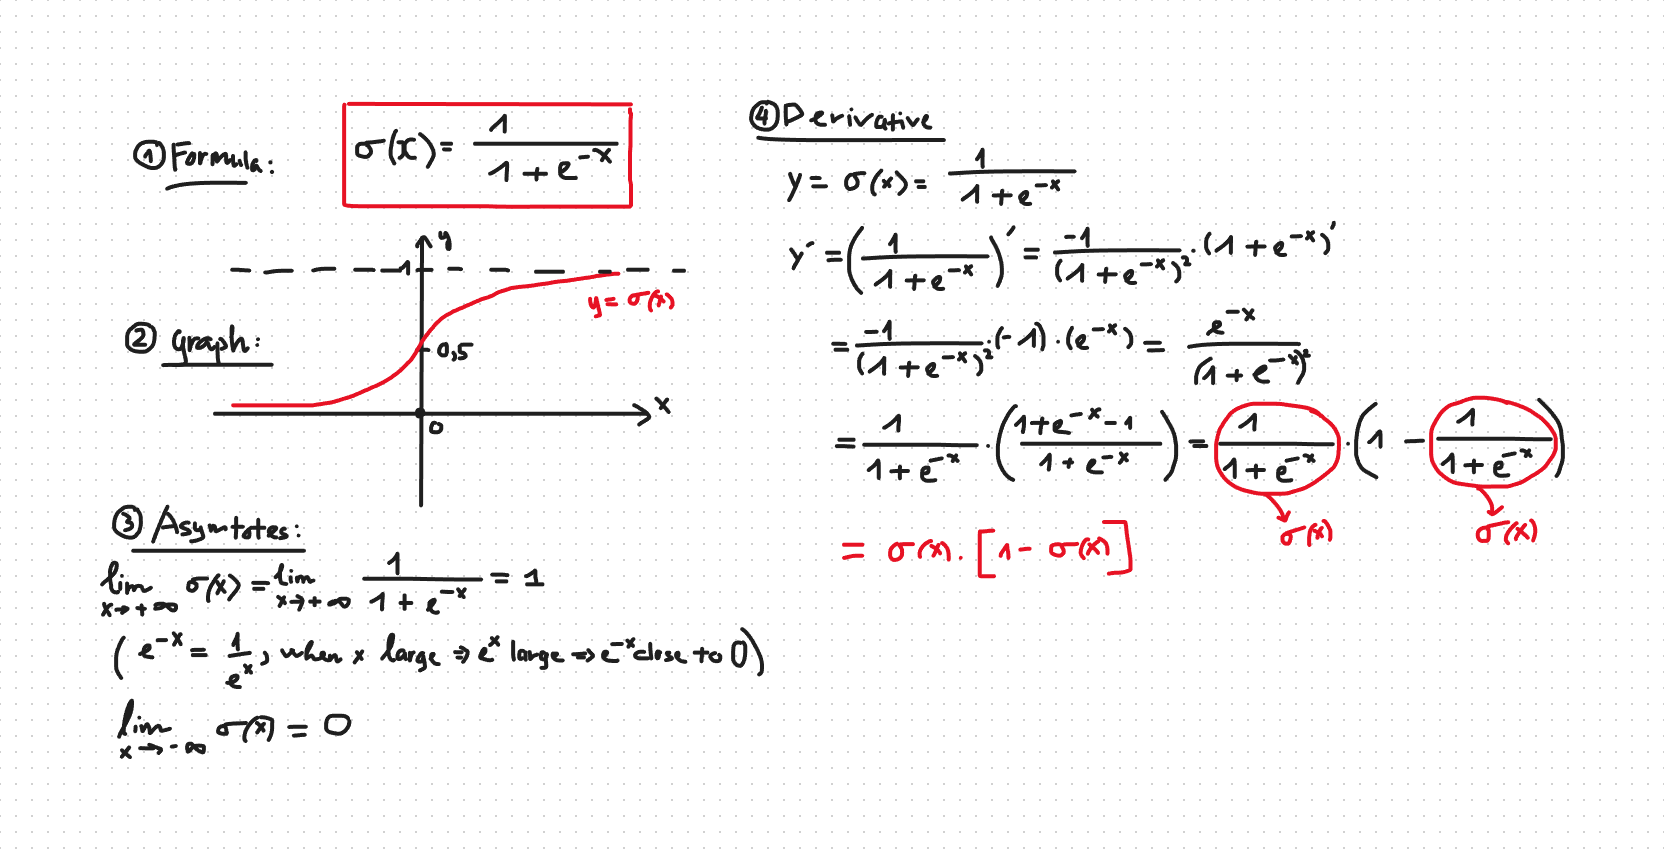 ① Formula: σ(x) = 1 / (1 + e^-x)
y
1
y = σ(x)
② Graph:
0,5
x
0
③ Asymtotes:
lim x→+∞ σ(x) = lim x→+∞ 1 / (1 + e^-x) = 1
( e^-x = 1 / e^x, when x large ⇒ e^x large ⇒ e^-x close to 0 )
lim x→-∞ σ(x) = 0
④ Derivative
y = σ(x) = 1 / (1 + e^-x)
y' = ( 1 / (1 + e^-x) )' = -1 / (1 + e^-x)² · (1 + e^-x)'
= -1 / (1 + e^-x)² · (-1) · (e^-x) = e^-x / (1 + e^-x)²
= 1 / (1 + e^-x) · ( (1 + e^-x - 1) / (1 + e^-x) ) = 1 / (1 + e^-x) · ( 1 - 1 / (1 + e^-x) )
σ(x) σ(x)
= σ(x) · [ 1 - σ(x) ]